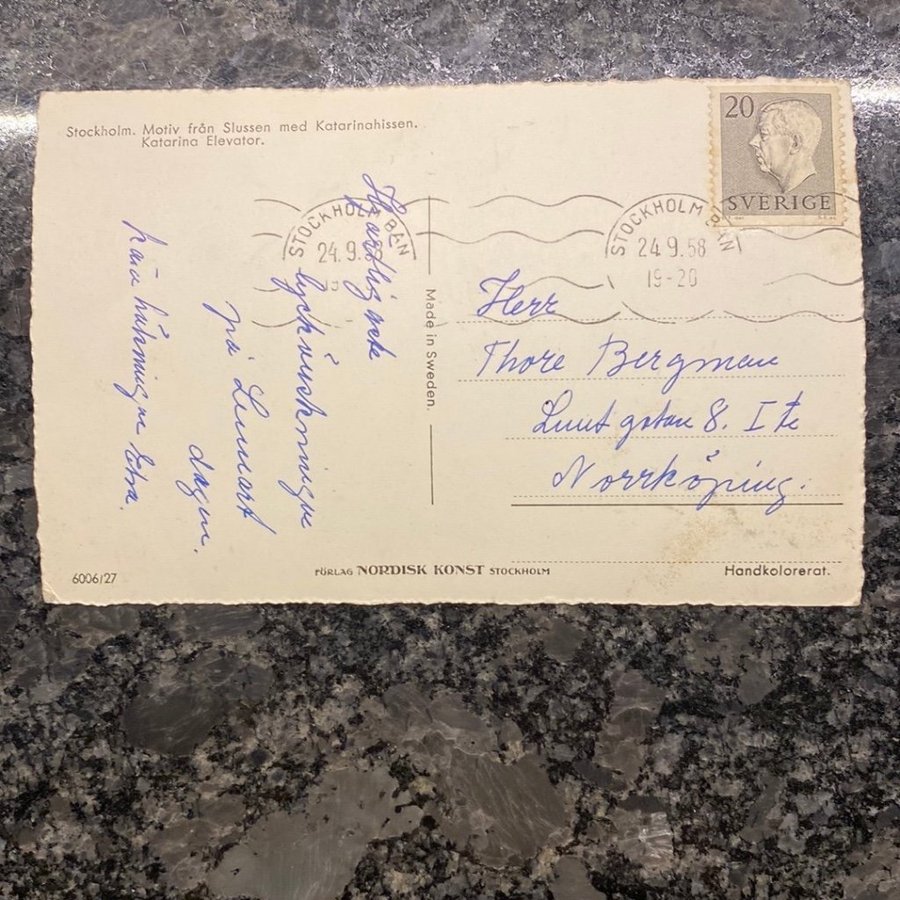 Stockholm. Motiv från Slussen med Katarinahissen.
Katarina Elevator.
20
SVERIGE
STOCKHOLM BAN
24.9.58
19-20
STOCKHOLM BAN
24.9.58
19
Hjärtligaste
lyckönskningar
på Lennart
dagen.
Made in Sweden.
Herr
Thore Bergman
gatan 8. I
Norrköping.
6006/27
FÖRLAG NORDISK KONST STOCKHOLM
Handkolorerat.